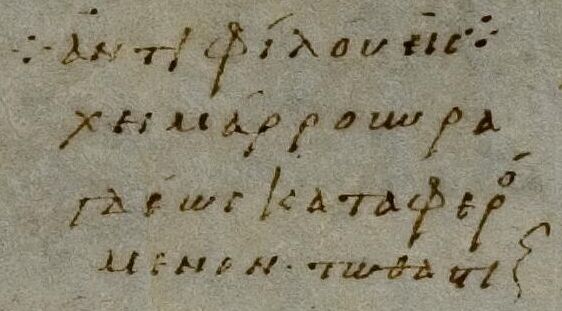 ⁘ ἀντιφίλου εἰς ⁘
χημάρρουν ρα
γδέως καταφερό
μενον τῶ θατι